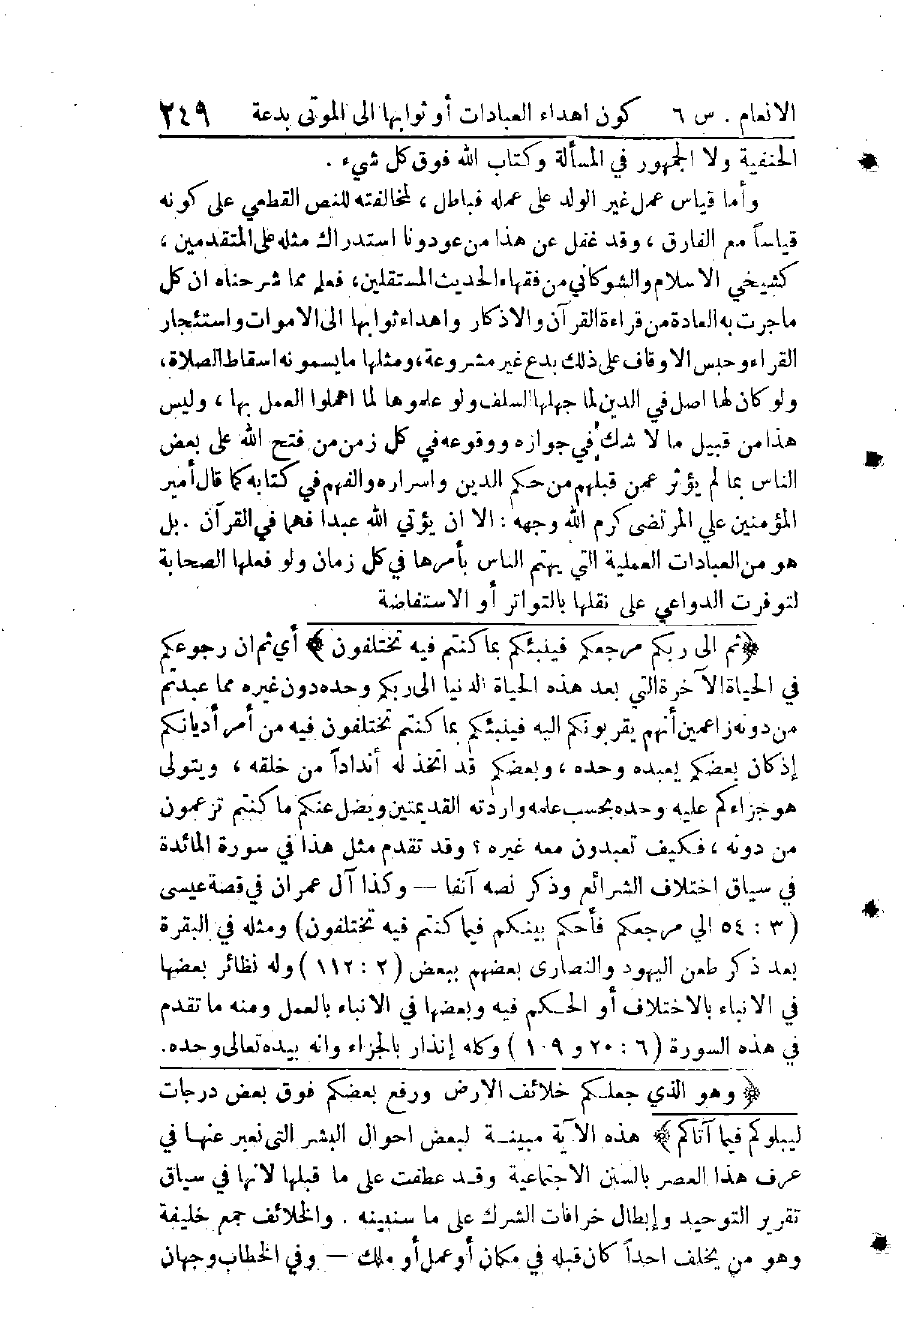 الانعام . س ٦ كون اهداء العبادات أو ثوابها الى الموتى بدعة ٢٤٩
الحنفية ولا الجمهور في المسألة وكتاب الله فوق كل شيء .
وأما قياس عمل غير الولد على عمله فباطل ، لمخالفته للنص القطعي على كونه
قياساً مع الفارق ، وقد غفل عن هذا من عودونا استدراك مثله على المتقدمين ،
كشيخي الاسلام والشوكاني من فقهاء الحديث المستقلين ، فعلم مما شرحناه ان كل
ماجرت به العادة من قراءة القرآن والاذكار واهداء ثوابها الى الاموات واستئجار
القراء وحبس الاوقاف على ذلك بدع غير مشروعة ، ومثلها ما يسمونه اسقاط الصلاة ،
ولو كان لها اصل في الدين لما جهلها السلف ولو علموها لما اهملوا العمل بها ، وليس
هذا من قبيل ما لا شك في جوازه ووقوعه في كل زمن من فتح الله على بعض
الناس بما لم يؤثر عمن قبلهم من حكم الدين واسراره والفهم في كتابه كما قال أمير
المؤمنين علي المرتضى كرم الله وجهه : الا ان يؤتي الله عبدا فهما في القرآن . بل
هو من العبادات العملية التي يهتم الناس بأمرها في كل زمان ولو فعلها الصحابة
لتوفرت الدواعي على نقلها بالتواتر أو الاستفاضة
﴿ ثم الى ربكم مرجعكم فينبئكم بما كنتم فيه تختلفون ﴾ أي ثم ان رجوعكم
في الحياة الآخرة التي بعد هذه الحياة الدنيا الى ربكم وحده دون غيره مما عبدتم
من دونه زاعمين أنهم يقربونكم اليه فينبئكم بما كنتم تختلفون فيه من أمر أديانكم
إذ كان بعضكم يعبده وحده ، وبعضكم قد اتخذ له أنداداً من خلقه ، ويتولى
هو جزاءكم عليه وحده بحسب علمه وارادته القديمتين ويضل عنكم ما كنتم تزعمون
من دونه ، فكيف تعبدون معه غيره ؟ وقد تقدم مثل هذا في سورة المائدة
في سياق اختلاف الشرائع وذكر نصه آنفا — وكذا آل عمران في قصة عيسى
( ٣ : ٥٤ الي مرجعكم فأحكم بينكم فيما كنتم فيه تختلفون) ومثله في البقرة
بعد ذكر طعن اليهود والنصارى بعضهم ببعض ( ٢ : ١١٢ ) وله نظائر بعضها
في الانباء بالاختلاف أو الحكم فيه وبعضها في الانباء بالعمل ومنه ما تقدم
في هذه السورة ( ٦ : ٢٠ و ١٠٩ ) وكله إنذار بالجزاء وانه بيده تعالى وحده.
﴿ وهو الذي جعلكم خلائف الارض ورفع بعضكم فوق بعض درجات
ليبلوكم فيما آتاكم ﴾ هذه الآية مبينة لبعض احوال البشر التى نعبر عنها في
عرف هذا العصر بالسنن الاجتماعية وقد عطفت على ما قبلها لانها في سياق
تقرير التوحيد وإبطال خرافات الشرك على ما سنبينه . والخلائف جمع خليفة
وهو من يخلف احداً كان قبله في مكان أو عمل أو ملك — وفي الخطاب وجهان